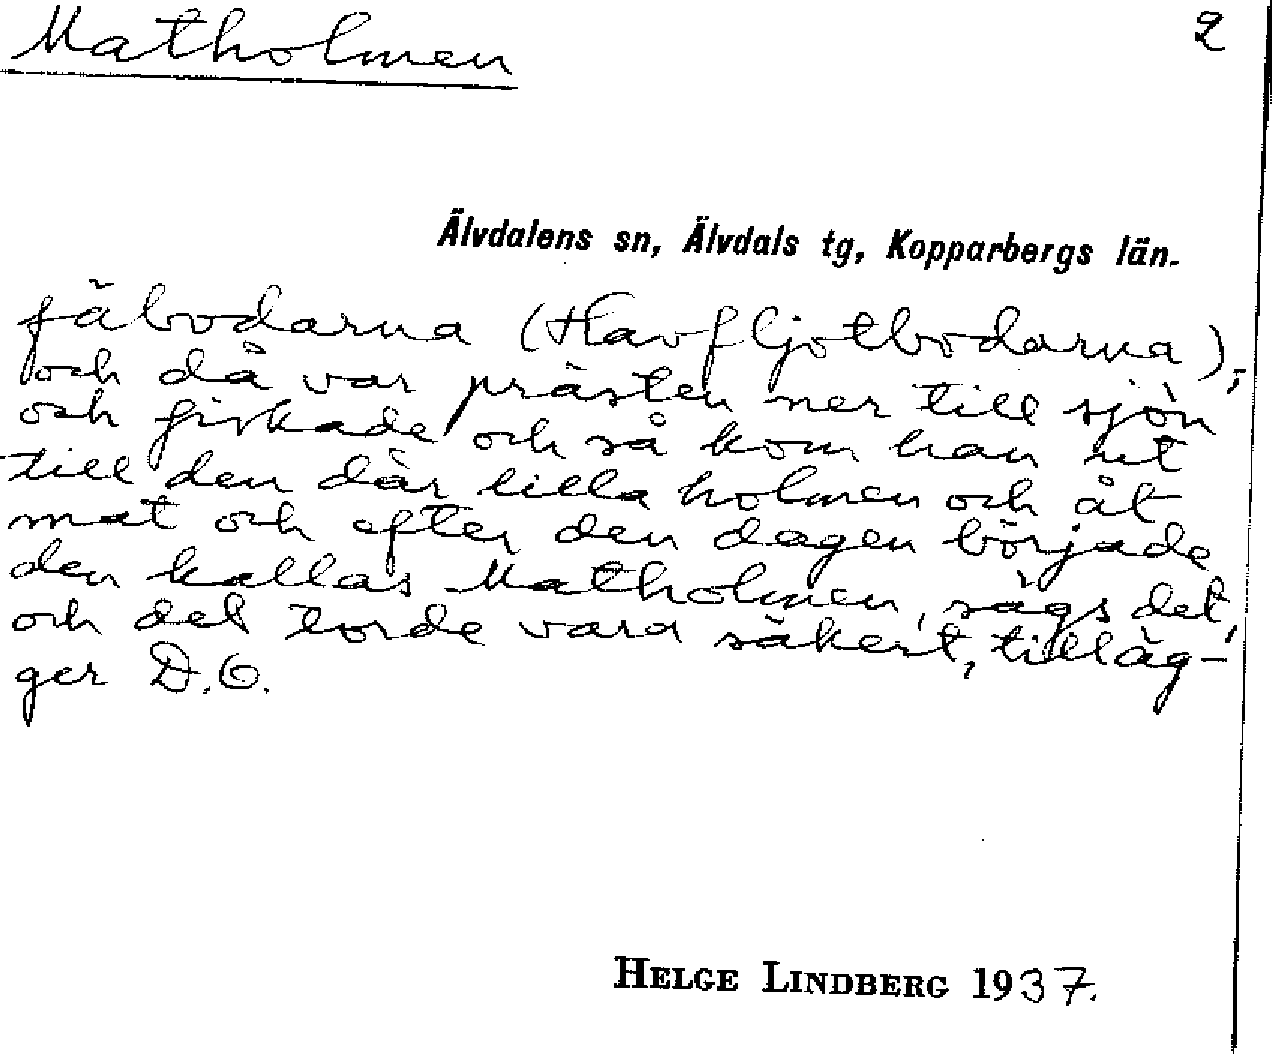 Matholmen
2
Älvdalens sn, Älvdals tg, Kopparbergs län.
fäbodarna (Havfljotbodarna),
och då var prästen ner till sjön
och fiskade och så kom han ut
till den där lilla holmen och åt
mat och efter den dagen började
den kallas Matholmen, sägs det,
och det torde vara säkert, tilläg-
ger D.O.
HELGE LINDBERG 1937.